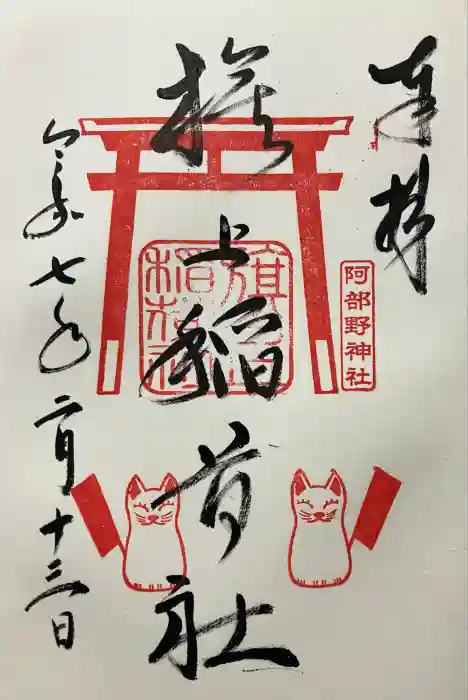 奉拝
阿部野神社
旗上稲荷社
旗上稲荷社
令和七年二月十三日